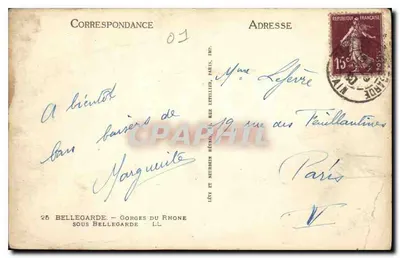 CORRESPONDANCE
ADRESSE
01
REPUBLIQUE FRANÇAISE
15c
A bientôt
bons baisers de
Marguerite
Mme Lefèvre
19 rue des Feuillantines
Paris
V
CPARAMA
LÉVY ET NEURDEIN RÉUNIS
PARIS, IMP.
25 BELLEGARDE. - GORGES DU RHONE
SOUS BELLEGARDE LL